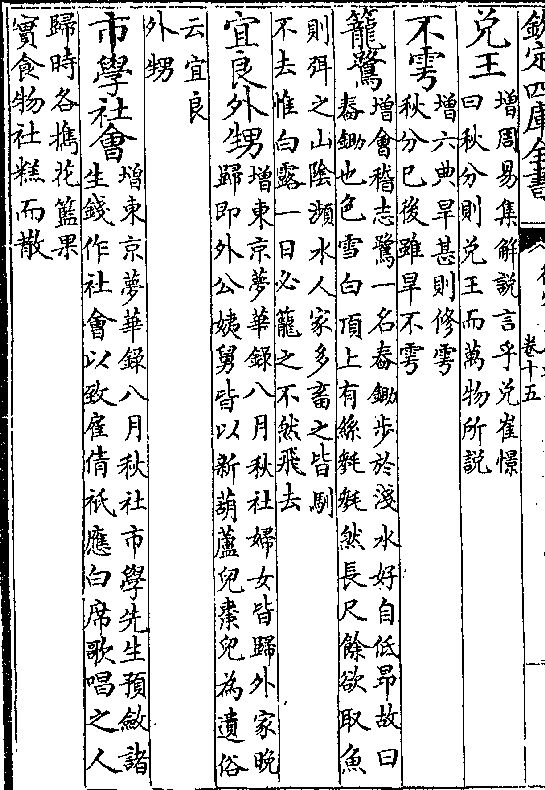 欽定四庫全書
卷十五
兌王 增周易集解說言乎兌崔憬
曰秋分則兌王而萬物所説
不雩 增六典旱甚則修雩
秋分已後雖旱不雩
籠鷺 增會稽志鷺一名舂鋤步於淺水好自低昂故曰
舂鋤也色雪白頂上有絲毿毿然長尺餘欲取魚
則弭之山陰瀕水人家多畜之皆馴
不去惟白露一日必籠之不然飛去
宜良外甥 增東京夢華録八月秋社婦女皆歸外家晚
歸即外公姨舅皆以新葫蘆兒棗兒為遺俗
云宜良
外甥
市學社會 增東京夢華録八月秋社市學先生預斂諸
生錢作社會以致雇倩祗應白席歌唱之人
歸時各擕花籃果
實食物社糕而散